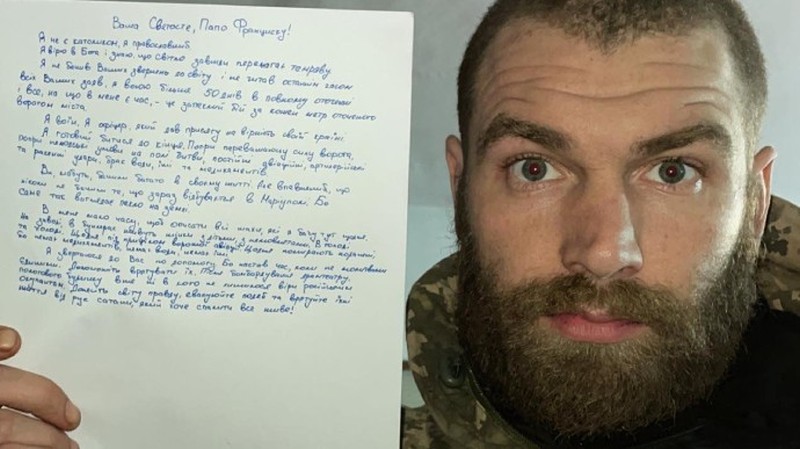 Ваша Святосте, Папо Франциску!
Я не є католиком, я православний.
Я вірю в Бога і знаю, що світло завжди перемагає темряву.
Я не бачив Ваших звернень до світу і не читав останнім часом
всіх Ваших заяв, я воюю більше 50 днів в повному оточенні
і все, на що в мене є час, - це запеклий бій за кожен метр оточеного
ворогом міста.
Я воїн. Я офіцер, який дав присягу на вірність своїй країні.
Я готовий битися до кінця. Попри переважаючу силу ворога,
попри нелюдські умови на полі битви, постійні авіаційні, артилерійські
та ракетні удари, брак води, їжі та медикаментів.
Ви, мабуть, бачили багато в своєму житті. Але впевнений, що
ніколи не бачили те, що зараз відбувається в Маріуполі. Бо
саме так виглядає пекло на землі.
В мене мало часу, щоб описати всі жахи, які я бачу тут щодня.
На заводі в бункерах живуть жінки з дітьми, з немовлятами. В голоді
та холоді. Щодня під прицілом ворожої авіації. Щодня помирають поранені,
бо немає медикаментів, немає води, немає їжі.
Я звертаюсь до Вас по допомогу. Бо настав час, коли не молитвами
єдиними. Допоможіть врятувати їх. Після бомбардування драмтеатру,
пологового будинку вже ні в кого не лишилося віри російським
окупантам. Донесіть світу правду, евакуюйте людей та врятуйте їхні
життя від рук сатани, який хоче спалити все живе!